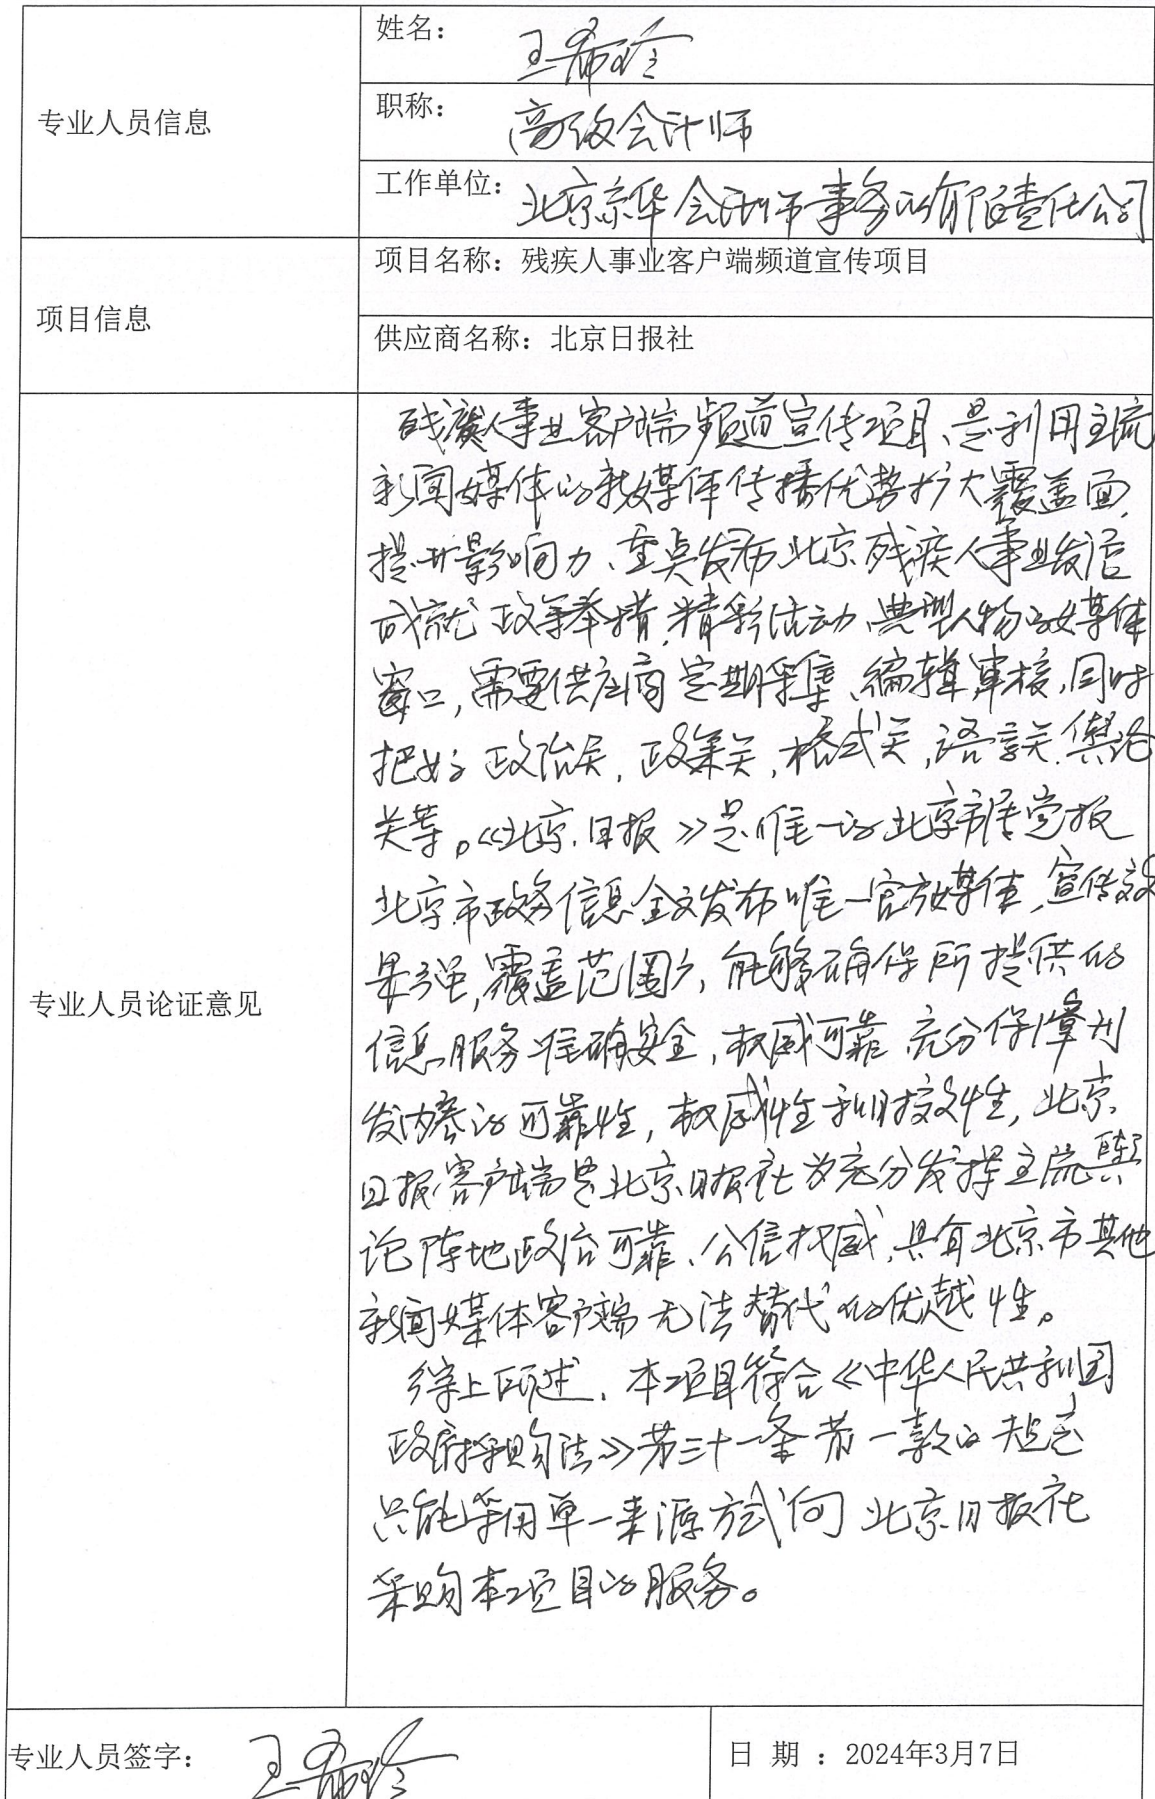 专业人员信息
姓名：王希玲
职称：高级会计师
工作单位：北京京华会计师事务所有限责任公司
项目信息
项目名称：残疾人事业客户端频道宣传项目
供应商名称：北京日报社
专业人员论证意见
残疾人事业客户端频道宣传项目、是利用主流
新闻媒体的新媒体传播优势扩大覆盖面，
提升影响力、重点发布北京残疾人事业发展
成就 政策举措，精彩活动、典型人物的媒体
窗口，需要供应商定期采集、编辑审核，同时
把好政治关，政策关，格式关，语言关，舆论
关等。《北京日报》是唯一的北京市属党报
北京市政务信息全文发布唯一官方媒体，宣传效
果强，覆盖范围广，能够确保所提供的
信息服务准确安全，权威可靠，充分保障刊
发内容的可靠性，权威性和时效性，北京
日报客户端是北京日报社为充分发挥主流舆
论阵地政治可靠、公信权威，具有北京市其他
新闻媒体客户端无法替代的优越性。
综上所述，本项目符合《中华人民共和国
政府采购法》第三十一条第一款的规定
只能采用单一来源方式向北京日报社
采购本项目的服务。
专业人员签字：王希玲
日 期 ：2024年3月7日